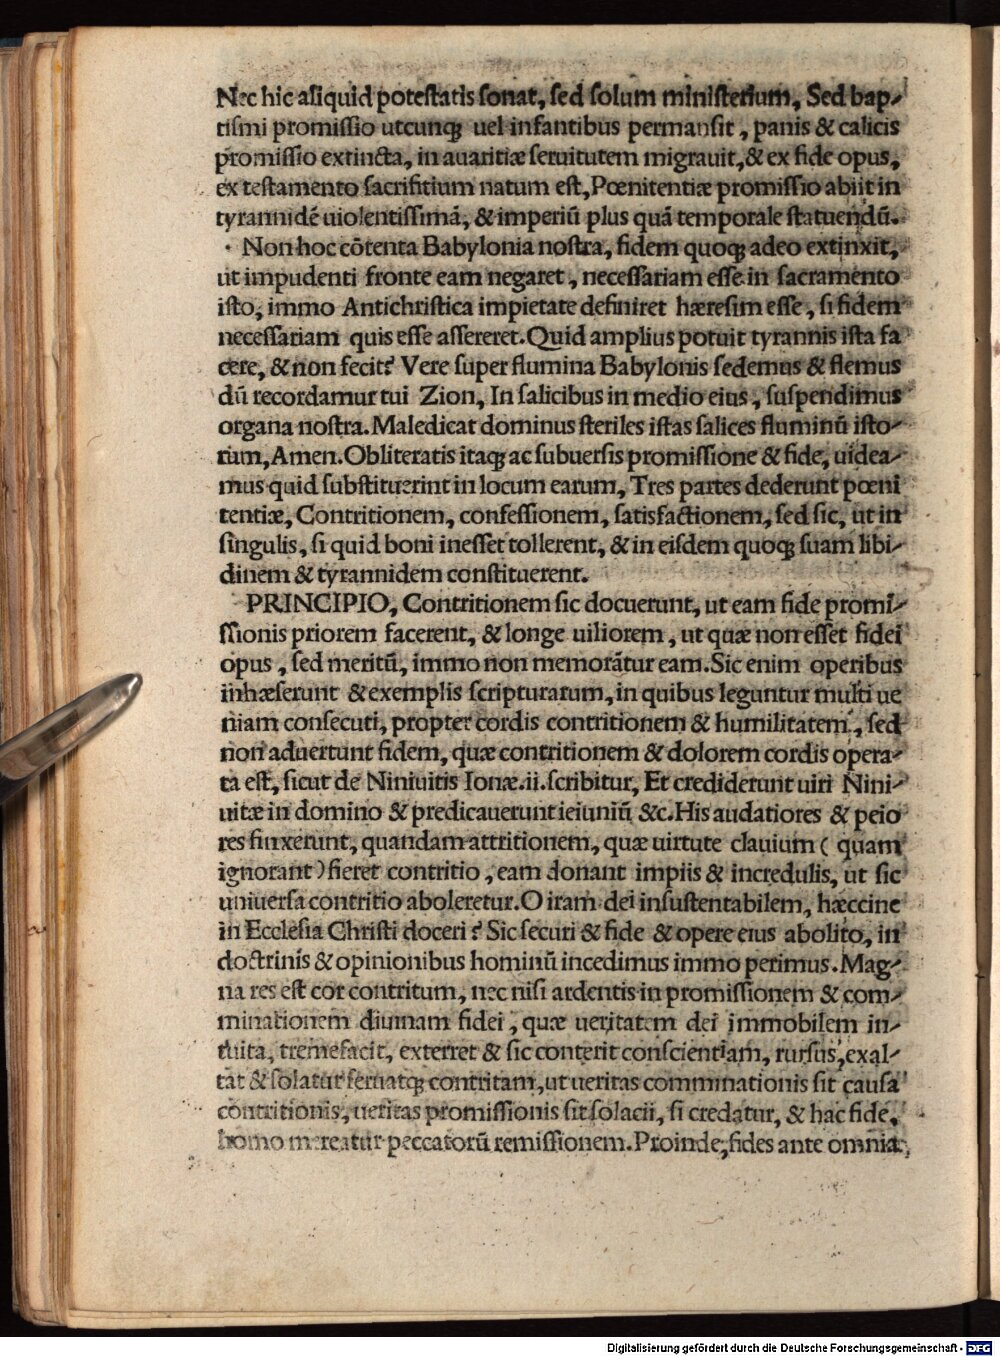 Nec hic aliquid potestatis sonat, sed solum ministerium, Sed bap-
tismi promissio utcunqꝫ uel infantibus permansit, panis & calicis
promissio extincta, in auaritiæ seruitutem migrauit, & ex fide opus,
ex testamento sacrifitium natum est, Pœnitentiæ promissio abiit in
tyrannidē uiolentissimā, & imperiū plus quā temporale statuendū.
Non hoc cōtenta Babylonia nostra, fidem quoqꝫ adeo extinxit,
ut impudenti fronte eam negaret, necessariam esse in sacramento
isto, immo Antichristica impietate definiret hæresim esse, si fidem
necessariam quis esse assereret. Quid amplius potuit tyrannis ista fa
cere, & non fecit? Vere super flumina Babylonis sedemus & flemus
dū recordamur tui Zion, In salicibus in medio eius, suspendimus
organa nostra. Maledicat dominus steriles istas salices fluminū isto-
rum, Amen. Obliteratis itaqꝫ ac subuersis promissione & fide, uidea-
mus quid substituerint in locum earum, Tres partes dederunt pœni
tentiæ, Contritionem, confessionem, satisfactionem, sed sic, ut in
singulis, si quid boni inesset tollerent, & in eisdem quoqꝫ suam libi-
dinem & tyrannidem constituerent.
PRINCIPIO, Contritionem sic docuerunt, ut eam fide promi-
ssionis priorem facerent, & longe uiliorem, ut quæ non esset fidei
opus, sed meritū, immo non memorātur eam. Sic enim operibus
inhæserunt & exemplis scripturarum, in quibus leguntur multi ue
niam consecuti, propter cordis contritionem & humilitatem, sed
non aduertunt fidem, quæ contritionem & dolorem cordis opera-
ta est, sicut de Niniuitis Ionæ.ii. scribitur, Et crediderunt uiri Nini-
uitæ in domino & predicauerunt ieiuniū &c. His audatiores & peio
res finxerunt, quandam attritionem, quæ uirtute clauium ( quam
ignorant ) fieret contritio, eam donant impiis & incredulis, ut sic
uniuersa contritio aboleretur. O iram dei insustentabilem, hæccine
in Ecclesia Christi doceri? Sic securi & fide & opere eius abolito, in
doctrinis & opinionibus hominū incedimus immo perimus. Mag-
na res est cor contritum, nec nisi ardentis in promissionem & com-
minationem diuinam fidei, quæ ueritatem dei immobilem in-
tuita, tremefacit, exterret & sic conterit conscientiam, rursus, exal-
tat & solatur seruatqꝫ contritam, ut ueritas comminationis sit causa
contritionis, ueritas promissionis sit solacii, si credatur, & hac fide,
homo mereatur peccatorū remissionem. Proinde, fides ante omnia
Digitalisierung gefördert durch die Deutsche Forschungsgemeinschaft - DFG